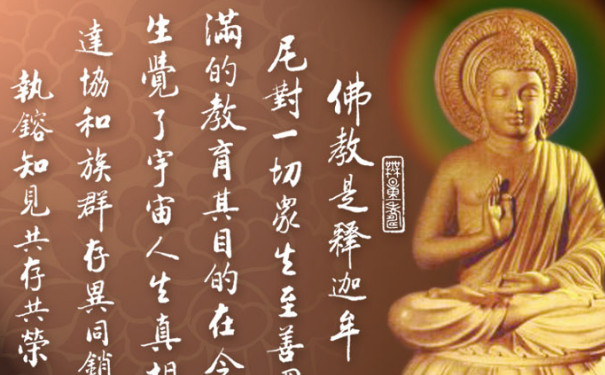 佛教是釋迦牟
尼對一切眾生至善
滿的教育其目的在令
生覺了宇宙人生真相
達協和族群存異同銷
執鎔知見共存共榮